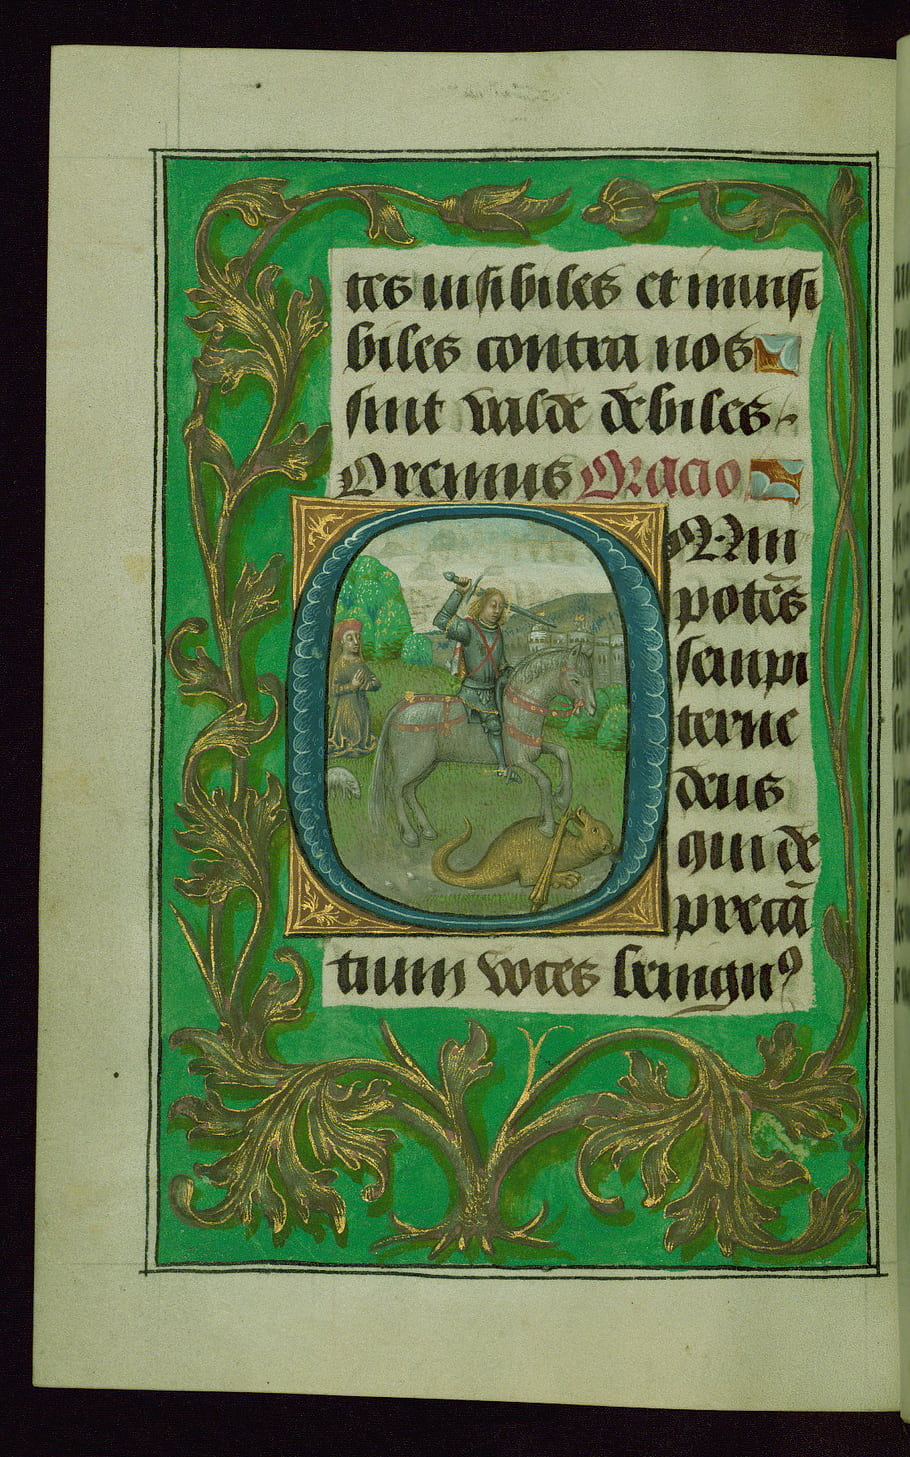 tes uisibiles et inuisi
biles contra nos
sint valde debiles
Oremus Oracio
Omni
potẽs
sempi
terne
deus
qui de
precã
tium voces benignꝰ